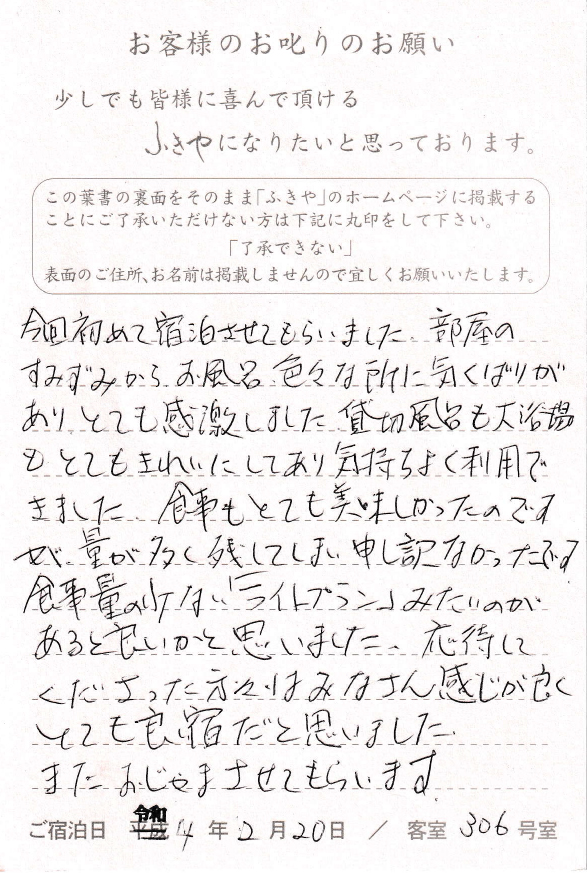 お客様のお叱りのお願い
少しでも皆様に喜んで頂ける
ふきやになりたいと思っております。
この葉書の裏面をそのまま「ふきや」のホームページに掲載する
ことにご了承いただけない方は下記に丸印をして下さい。
「了承できない」
表面のご住所、お名前は掲載しませんので宜しくお願いいたします。
今回初めて宿泊させてもらいました、部屋の
すみずみから、お風呂、色々な所に気くばりが
あり、とても感激しました 貸切風呂も大浴場
もとてもきれいにしてあり気持ちよく利用で
きました、食事もとても美味しかったのです
が、量が多く残してしまい申し訳なかったです
食事量の少ない「ライトプラン」みたいのが
あると良いかと思いました、応待して
くださった方々はみなさん感じが良く
とても良い宿だと思いました、
またおじゃまさせてもらいます
ご宿泊日 令和 平成 4 年 2 月 20 日 / 客室 306 号室